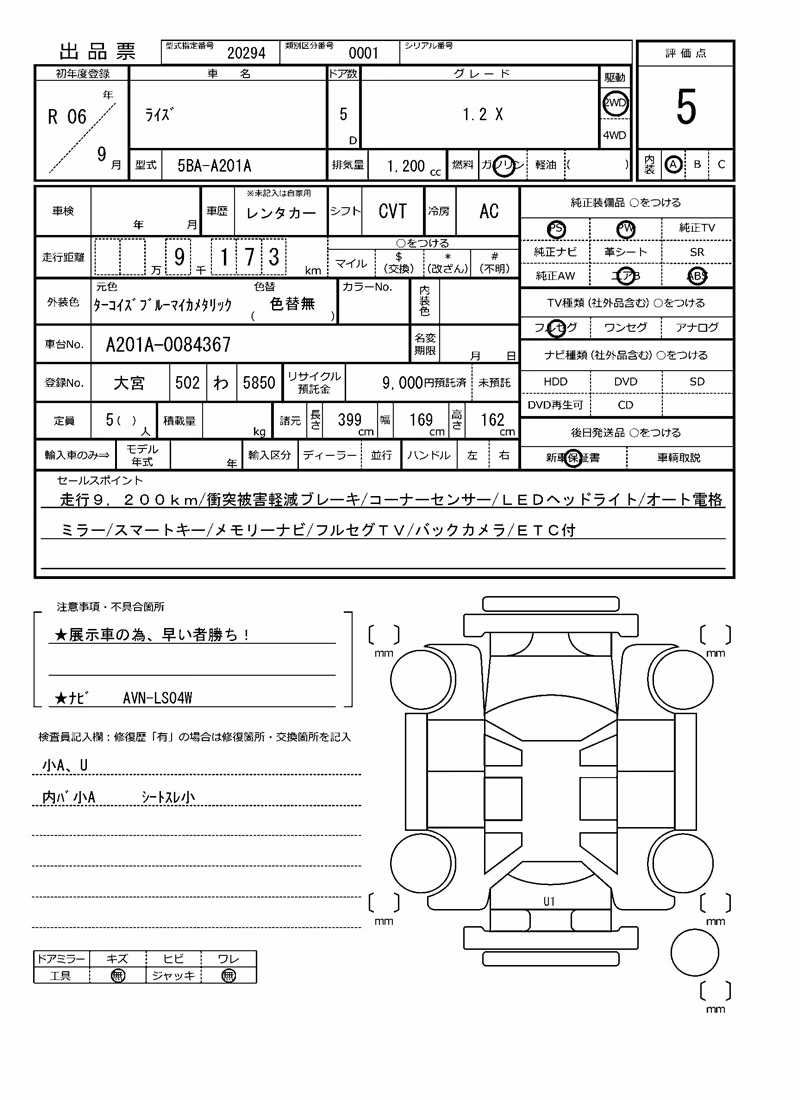 出品票 型式指定番号 20294 類別区分番号 0001 シリアル番号
評価点
初年度登録 車名 ドア数 グレード 駆動
R 06 年 9 月 ﾗｲｽﾞ 5 D 1.2 X 2WD 4WD
5
型式 5BA-A201A 排気量 1,200 cc 燃料 ガソリン 軽油 ( )
内装 A B C
車検 年 月 車歴 ※未記入は自家用 レンタカー シフト CVT 冷房 AC
走行距離 万 9 千 1 7 3 km
○をつける
マイル $ (交換) * (改ざん) # (不明)
外装色 元色 ﾀｰｺｲｽﾞﾌﾞﾙｰﾏｲｶﾒﾀﾘｯｸ 色替 ( 色替無 ) カラーNo. 内装色
車台No. A201A-0084367 名変期限 月 日
登録No. 大宮 502 わ 5850 リサイクル預託金 9,000円預託済 未預託
定員 5( ) 人 積載量 kg 諸元 長さ 399 cm 幅 169 cm 高さ 162 cm
輸入車のみ⇒ モデル年式 年 輸入区分 ディーラー 並行 ハンドル 左 右
純正装備品 ○をつける
PS PW 純正TV
純正ナビ 革シート SR
純正AW エアB ABS
TV種類(社外品含む)○をつける
フルセグ ワンセグ アナログ
ナビ種類(社外品含む)○をつける
HDD DVD SD
DVD再生可 CD
後日発送品 ○をつける
新車保証書 車輌取説
セールスポイント
走行９．２００ｋｍ/衝突被害軽減ブレーキ/コーナーセンサー/ＬＥＤヘッドライト/オート電格
ミラー/スマートキー/メモリーナビ/フルセグＴＶ/バックカメラ/ＥＴＣ付
注意事項・不具合箇所
★展示車の為、早い者勝ち！
★ﾅﾋﾞ AVN-LS04W
検査員記入欄：修復歴「有」の場合は修復箇所・交換箇所を記入
小A、U
内ﾊﾞ小A ｼｰﾄｽﾚ小
ドアミラー キズ ヒビ ワレ
工具 無 ジャッキ 無
mm
mm
U1
mm
mm
mm